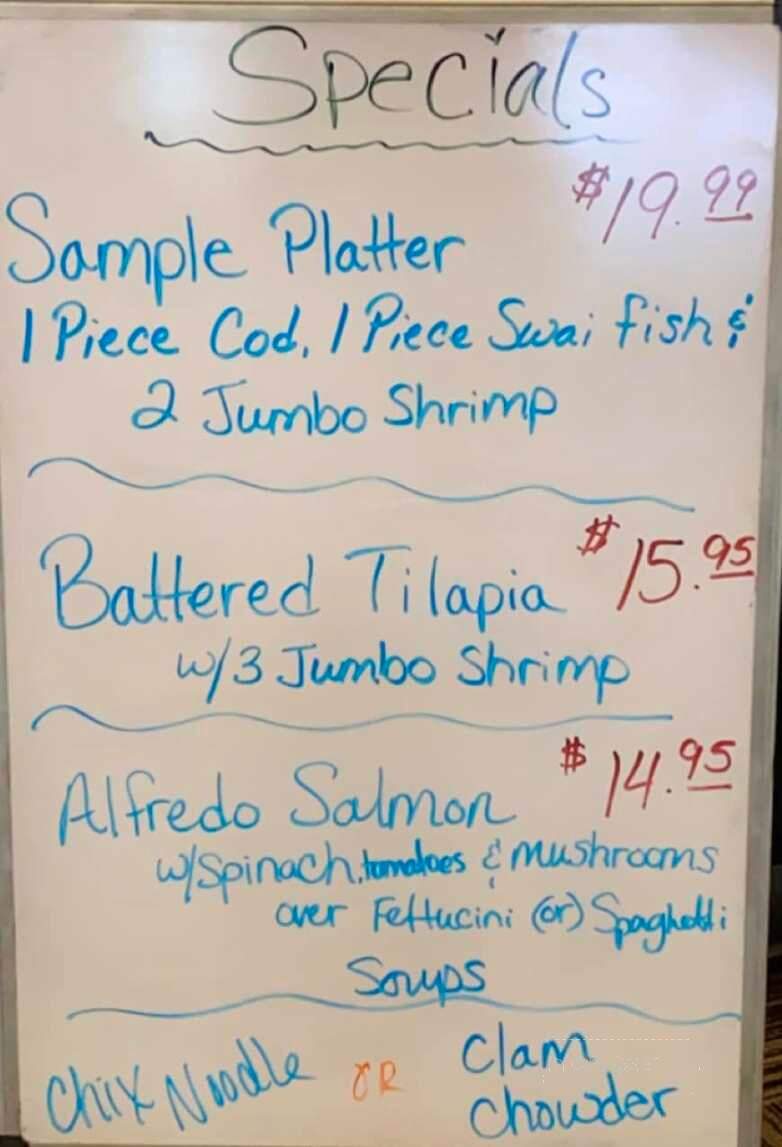 Specials
$19.99
Sample Platter
1 Piece Cod, 1 Piece Swai fish &
2 Jumbo Shrimp
Battered Tilapia $15.95
w/3 Jumbo Shrimp
Alfredo Salmon $14.95
w/Spinach, tomatoes & mushrooms
over Fettucini (or) Spaghetti
Soups
Chix Noodle OR Clam
Chowder